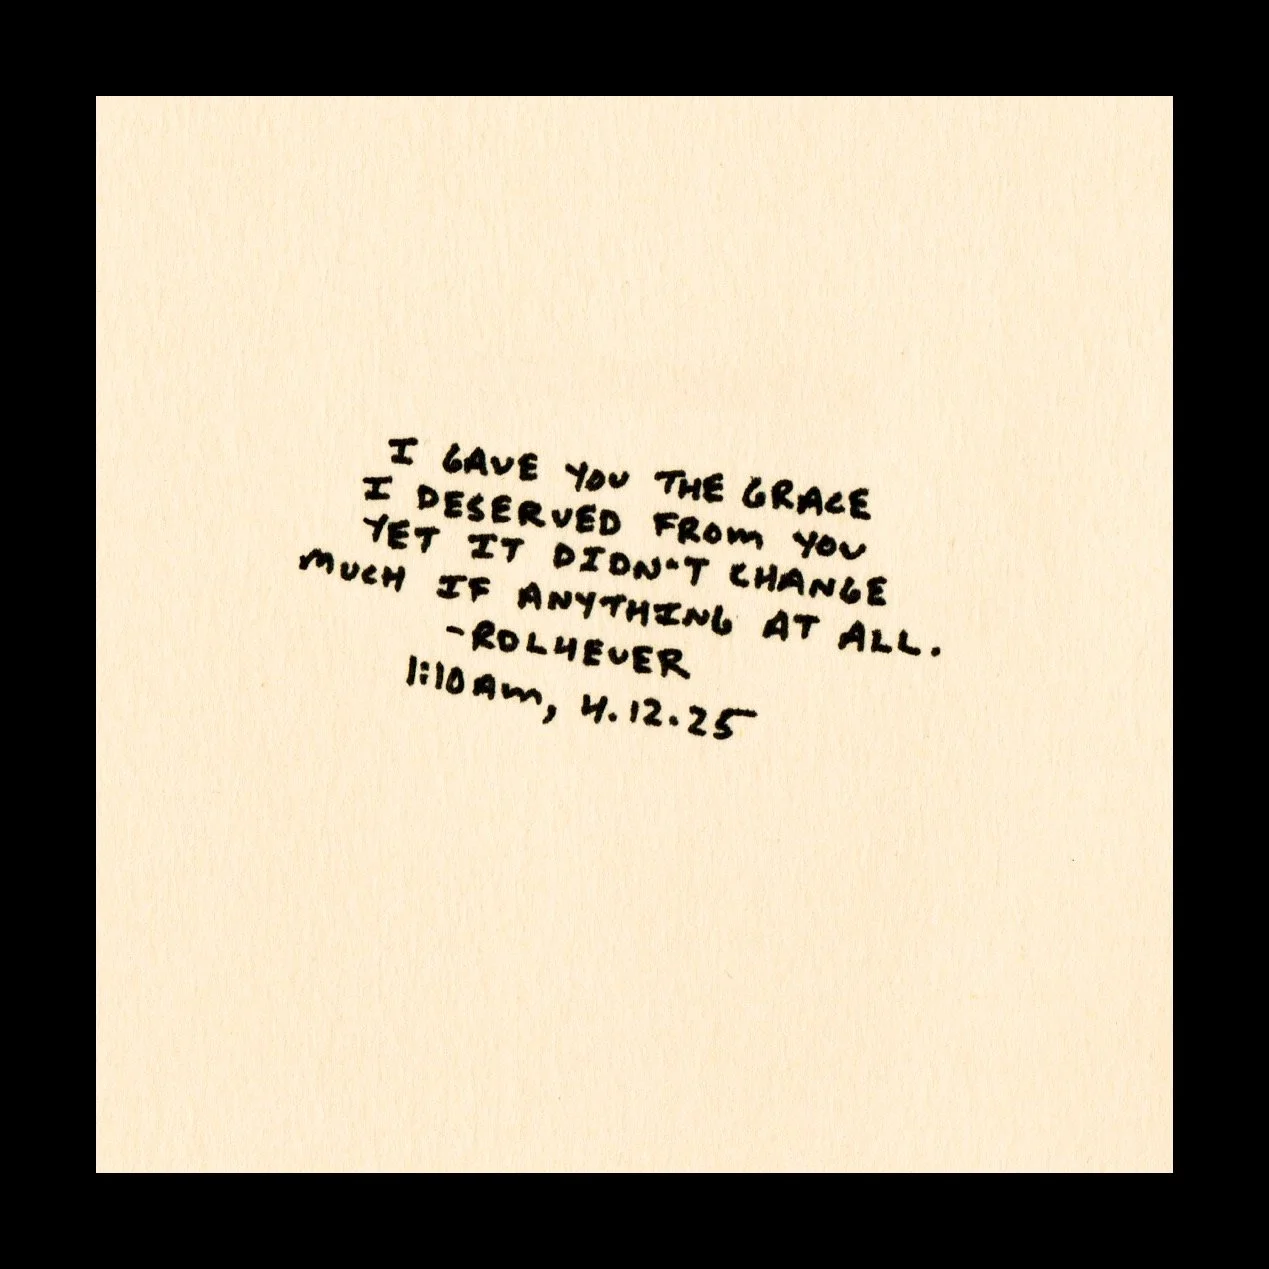 I GAVE YOU THE GRACE
I DESERVED FROM YOU
YET IT DIDN'T CHANGE
MUCH IF ANYTHING AT ALL.
-ROLHEUER
1:10AM, 4.12.25